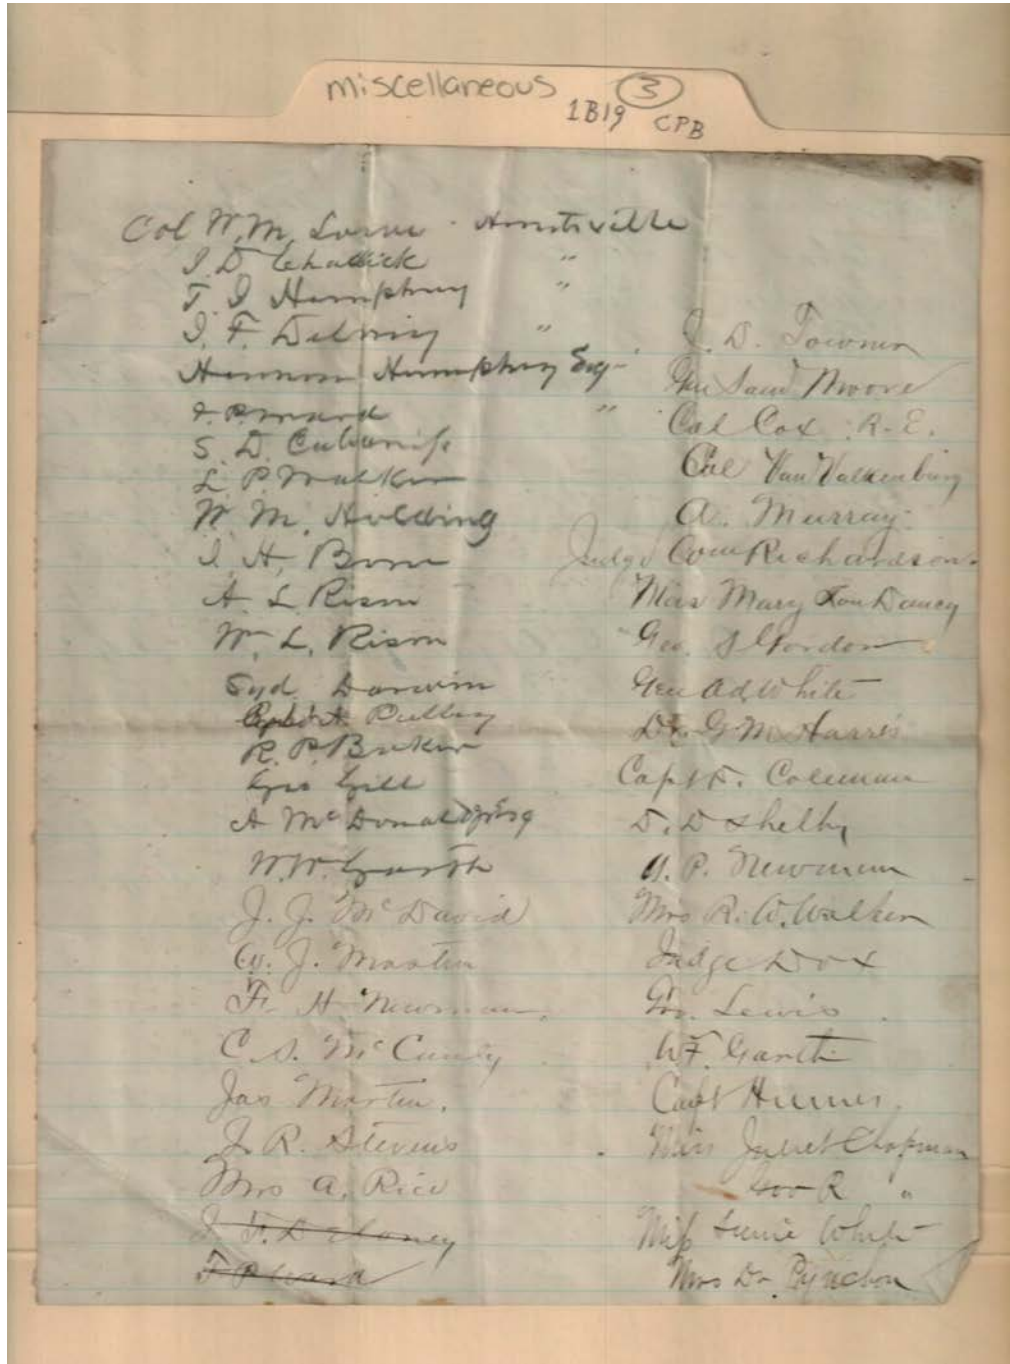 miscellaneous 3
1B19 CPB
Col W. M. Lowe - Huntsville
J. D. Chadick "
T. J. Humphrey "
J. F. Delaney "
Humphrey Esq
F. P. Ward "
S. D. Cabaniss
L. P. Walker
W. M. Holding
J. H. Bone
A. L. Rison
W. L. Rison
Syd Darwin
Pulley
R. P. Baker
Geo Gill
A McDonald Esq
W. W. Garth
J. J. McDavid
W. J. Mastin
F. H. Newman.
C. S. McCauly
Jas Mastin.
J. R. Stevens
Mrs A. Rice
J. F. Delaney
F P Ward
J. D. Towner
Gen Saml Moore
Col Cox R. E.
Col Van Valkenburg
A. Murray
Judge Wm Richardson.
Miss Mary Lou Dancy
Geo. S Gordon
Gen Ad White
Dr. G M Harris
Capt D. Coleman
D. D Shelby
A. P. Newman
Mrs R. W. Walker
Judge Dox
Lewis
W F. Garth
Capt Humes.
Miss Juliet Chapman
R "
Miss White
Mrs Dr. Pynchon